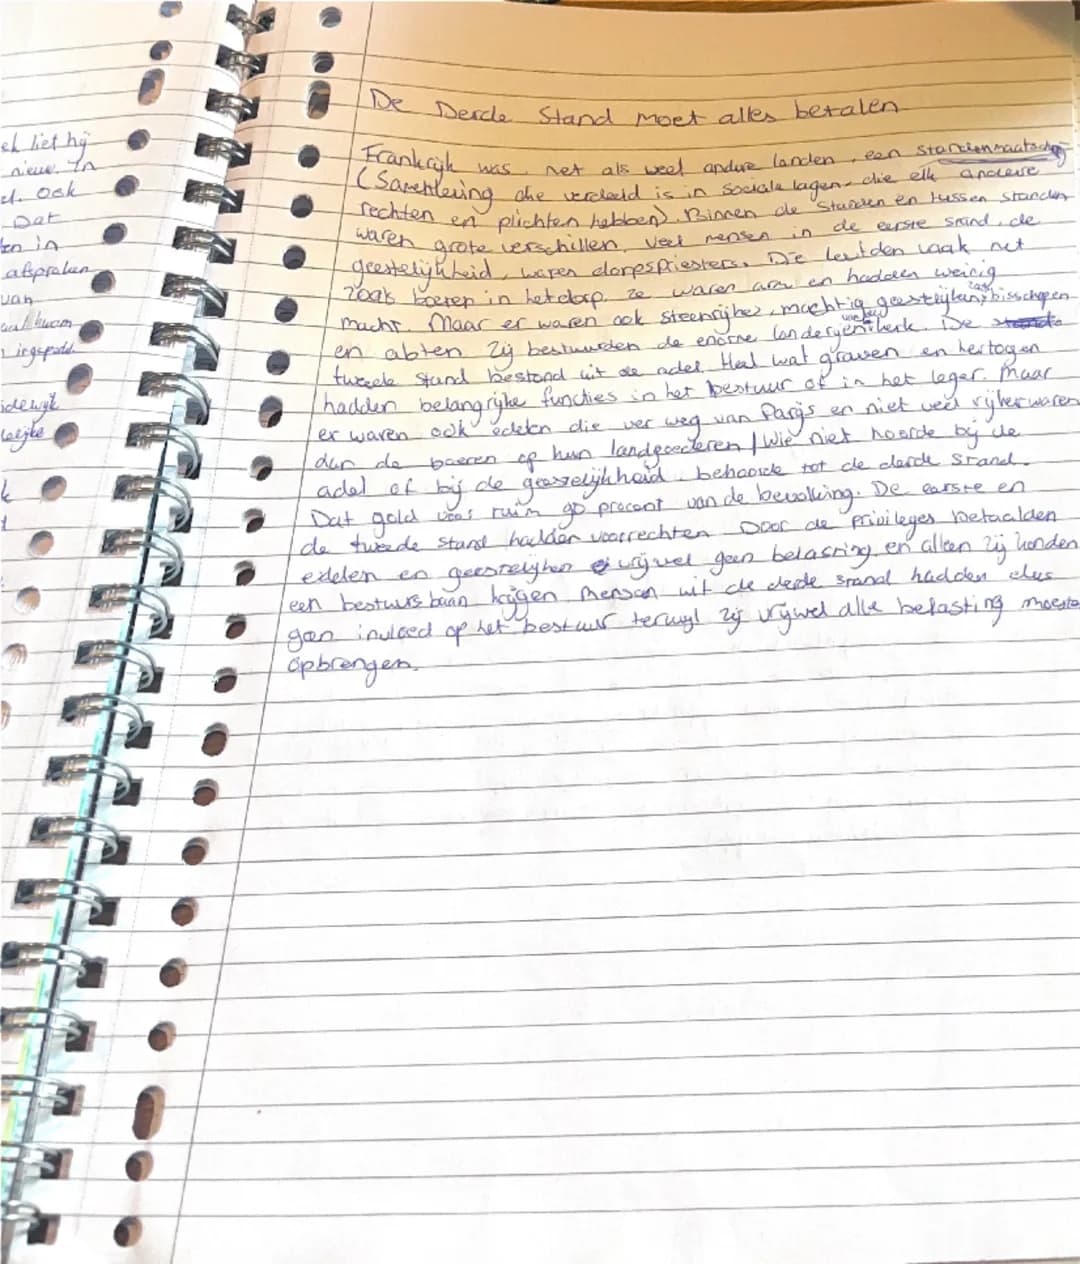 ek liet hij
nieuw. In
ook
Dat
en in
afspraken
van
De Derde Stand moet alles betalen
Frankrijk was, net als veel andere landen, een standenmaatschap
(Samenleving die verdeeld is in sociale lagen, die elk andere
rechten en plichten hebben) Binnen de standen en tussen standen
waren grote verschillen. Veel mensen in de eerste stand, de
geestelijkheid, waren dorpspriesters. Die leefden vaak net
zoals boeren in het dorp. Ze waren arm en hadden weinig
macht. Maar er waren ook steenrijke, machtig geestelijken, zoals bisschopen
en abten. Zij bestuurden de enorme landerijen van de kerk. De
tweede stand bestond uit de adel. Heel wat graven en hertogen
hadden belangrijke functies in het bestuur of in het leger. Maar
er waren ook edelen die ver weg van Parijs en niet veel rijker waren
dan de boeren op hun landgoederen / Wie niet hoorde bij de
adel of bij de geestelijkheid, behoorde tot de derde stand.
Dat gold voor ruim 90 procent van de bevolking. De eerste en
de tweede stand hadden voorrechten. Door de privileges betaalden
edelen en geestelijken vrijwel geen belasting en alleen zij konden
een bestuurs baan krijgen. Mensen uit de derde stand hadden dus
geen invloed op het bestuur terwijl zij vrijwel alle belasting moeste
opbrengen.